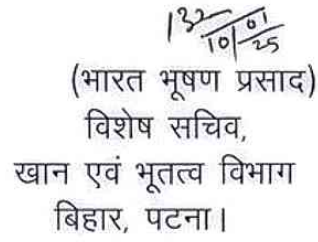 10/01/25
(भारत भूषण प्रसाद)
विशेष सचिव,
खान एवं भूतत्व विभाग
बिहार, पटना।